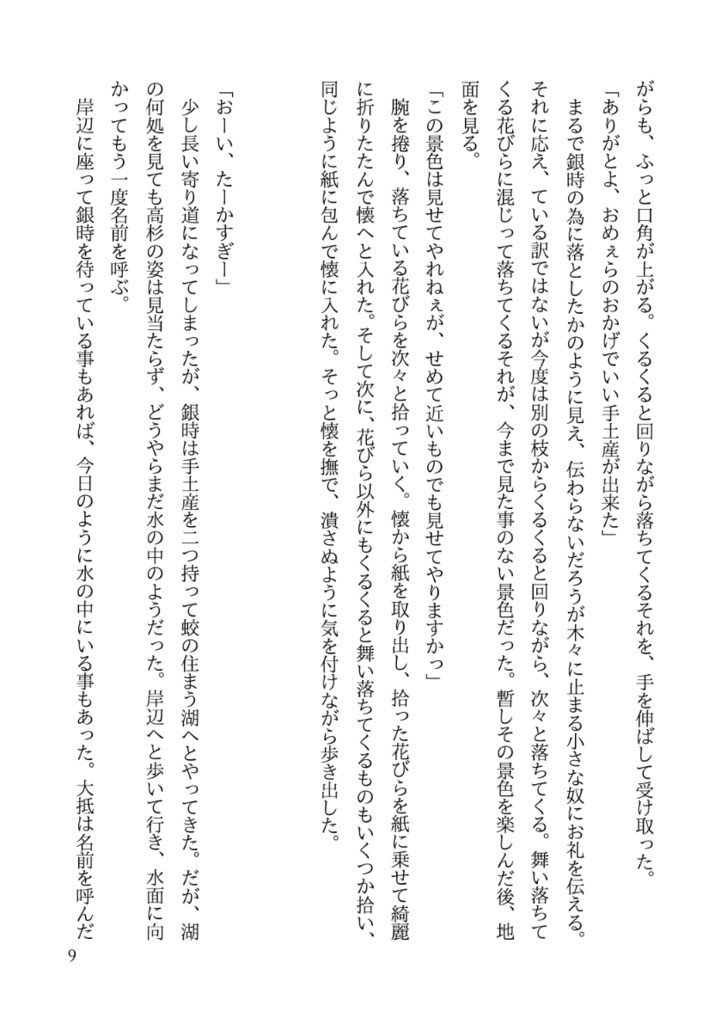 がらも、ふっと口角が上がる。くるくると回りながら落ちてくるそれを、手を伸ばして受け取った。
「ありがとよ、おめぇらのおかげでいい手土産が出来た」
　まるで銀時の為に落としたかのように見え、伝わらないだろうが木々に止まる小さな奴にお礼を伝える。
それに応え、ている訳ではないが今度は別の枝からくるくると回りながら、次々と落ちてくる。舞い落ちて
くる花びらに混じって落ちてくるそれが、今まで見た事のない景色だった。暫しその景色を楽しんだ後、地
面を見る。
「この景色は見せてやれねぇが、せめて近いものでも見せてやりますかっ」
　腕を捲り、落ちている花びらを次々と拾っていく。懐から紙を取り出し、拾った花びらを紙に乗せて綺麗
に折りたたんで懐へと入れた。そして次に、花びら以外にもくるくると舞い落ちてくるものもいくつか拾い、
同じように紙に包んで懐に入れた。そっと懐を撫で、潰さぬように気を付けながら歩き出した。
「おーい、たーかすぎー」
　少し長い寄り道になってしまったが、銀時は手土産を二つ持って蛟の住まう湖へとやってきた。だが、湖
の何処を見ても高杉の姿は見当たらず、どうやらまだ水の中のようだった。岸辺へと歩いて行き、水面に向
かってもう一度名前を呼ぶ。
　岸辺に座って銀時を待っている事もあれば、今日のように水の中にいる事もあった。大抵は名前を呼んだ
9